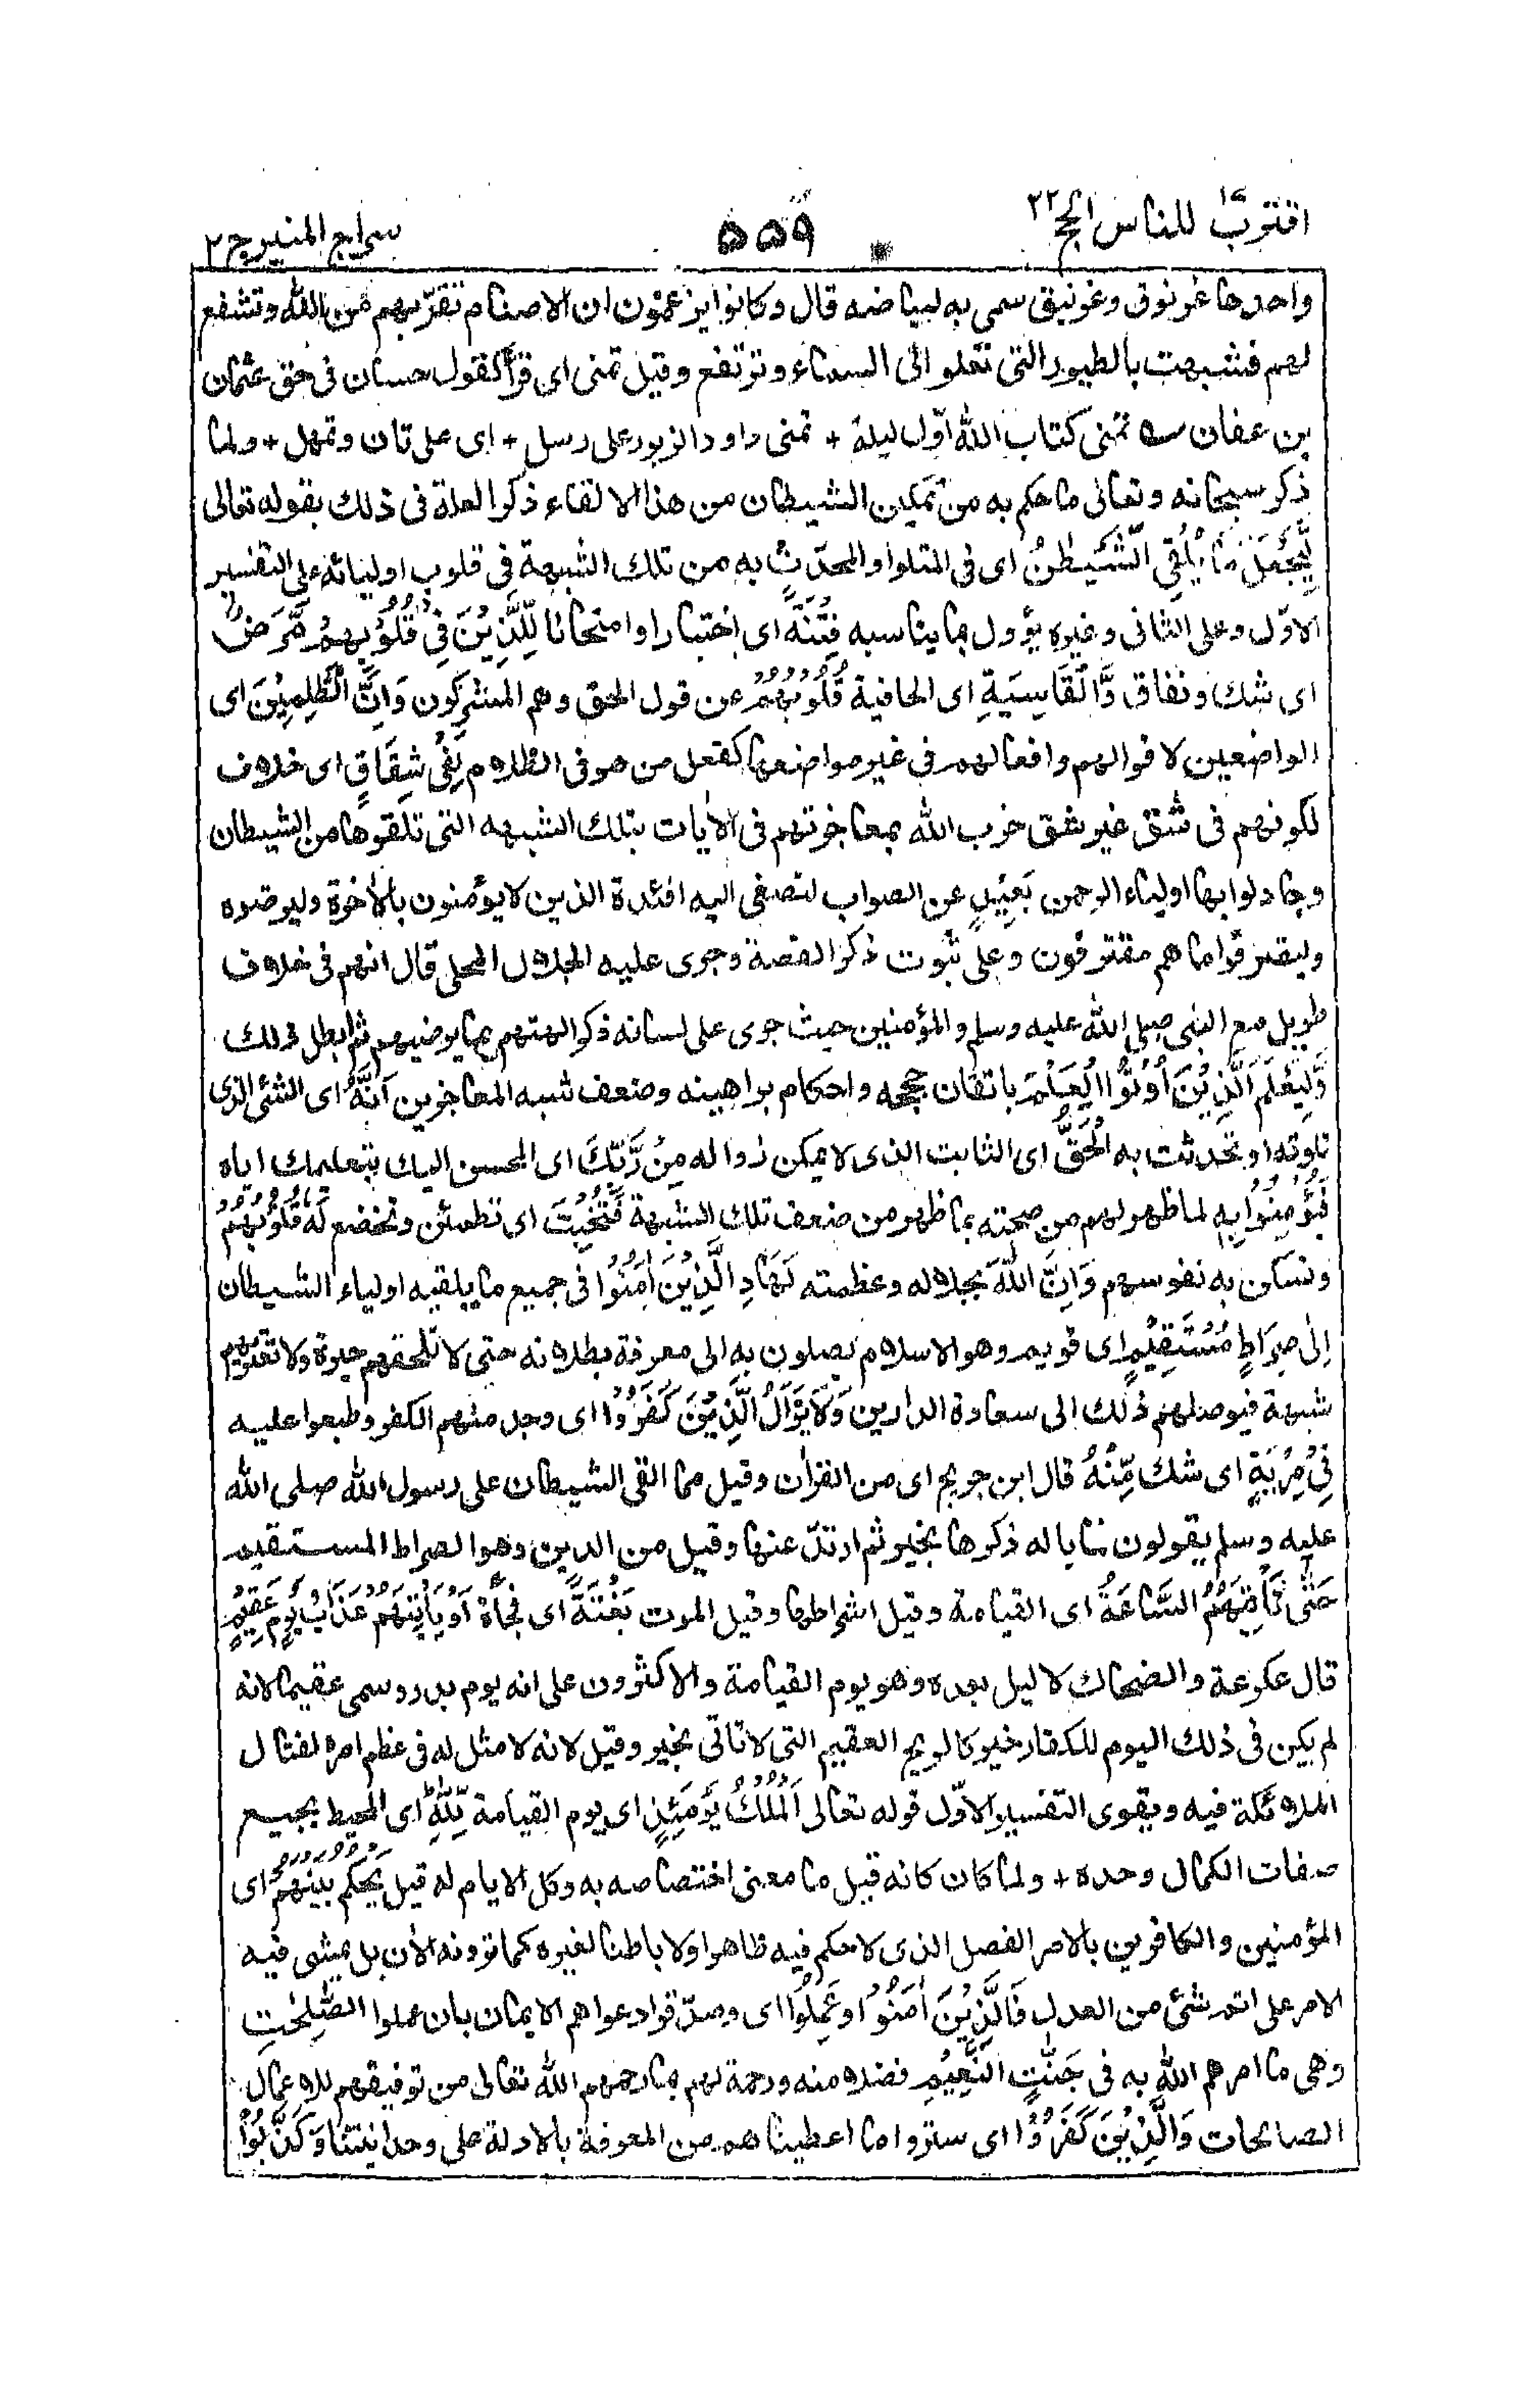 اقترب ١٧ للناس الحج ٢٢
٥٥٩
سراج المنير ج ٢
واحدها غرنوق وغرنيق سمى به لبياضه قال وكانوا يزعمون ان الاصنام تقرّبهم من الله وتشفع
لهم فشبهت بالطيور التى تعلو الى السماء وترتفع وقيل تمنى اى قرأ كقول حسان فى حق عثمان
بن عفان تمنى كتاب الله اوّل ليلة + تمنى داود الزبور على رسل + اى على تان وتمهل + ولما
ذكر سبحانه وتعالى ما حكم به من تمكين الشيطان من هذا الالقاء ذكر العلة فى ذلك بقوله تعالى
لِّيَجْعَلَ مَا يُلْقِى الشَّيْطٰنُ اى فى المتلو او المحدّث به من تلك الشبهة فى قلوب اوليائه على التفسير
الاوّل وعلى الثانى وغيره يؤول بما يناسبه فِتْنَةً اى اختبارا وامتحانا لِّلَّذِيْنَ فِىْ قُلُوْبِهِمْ مَّرَضٌ
اى شك ونفاق وَّالْقَاسِيَةِ اى الجافية قُلُوْبُهُمْ عن قول الحق وهم المشركون وَاِنَّ الظّٰلِمِيْنَ اى
الواضعين لاقوالهم وافعالهم فى غير مواضعها كفعل من هو فى الظلام لَفِىْ شِقَاقٍ اى خلاف
لكونهم فى شق غير شق حزب الله بمعاجزتهم فى الاٰيات بتلك الشبهه التى تلقوها من الشيطان
وجادلوا بها اولياء الرحمن بَعِيْدٍ عن الصواب لتصغى اليه افئدة الذين لا يؤمنون بالاٰخرة وليرضوه
وليقترفوا ما هم مقترفون وعلى ثبوت ذكر القصة وجرى عليه الجلال المحلى قال انهم فى خلاف
طويل مع النبى صلى الله عليه وسلم والمؤمنين حيث جرى على لسانه ذكر الهتهم بما يرضيهم ثم ابطل ذلك
وَّلِيَعْلَمَ الَّذِيْنَ اُوْتُوا الْعِلْمَ باتقان حججه واحكام براهينه وضعف شبه المعاجزين اَنَّهُ اى الشئ الذى
تلوته او تحدثت به الْحَقُّ اى الثابت الذى لا يمكن زواله مِنْ رَّبِّكَ اى المحسن اليك بتعليمك اياه
فَيُؤْمِنُوْا بِهٖ لما ظهر لهم من صحته بما ظهر من ضعف تلك الشبهة فَتُخْبِتَ اى تطمئن وتخضع لَهٗ قُلُوْبُهُمْ
وتسكن به نفوسهم وَاِنَّ اللّٰهَ بجلاله وعظمته لَهَادِ الَّذِيْنَ اٰمَنُوْا فى جميع ما يلقيه اولياء الشيطان
اِلٰى صِرَاطٍ مُّسْتَقِيْمٍ اى قويم وهو الاسلام يصلون به الى معرفة بطلانه حتى لا تلحقهم حيرة ولا تعتريهم
شبهة فيوصلهم ذلك الى سعادة الدارين وَلَا يَزَالُ الَّذِيْنَ كَفَرُوْا اى وجد منهم الكفر وطبعوا عليه
فِىْ مِرْيَةٍ اى شك مِّنْهُ قال ابن جريج اى من القراٰن وقيل مما القى الشيطان على رسول الله صلى الله
عليه وسلم يقولون ما باله ذكرها بخير ثم ارتدّ عنها وقيل من الدين وهو الصراط المستقيم
حَتّٰى تَأْتِيَهُمُ السَّاعَةُ اى القيامة وقيل اشراطها وقيل الموت بَغْتَةً اى فجأة اَوْ يَأْتِيَهُمْ عَذَابُ يَوْمٍ عَقِيْمٍ
قال عكرمة والضحاك لا ليل بعده وهو يوم القيامة والاكثرون على انه يوم بدر وسمى عقيما لانه
لم يكن فى ذلك اليوم للكفار خير كالريح العقيم التى لا تاتى بخير وقيل لانه لا مثل له فى عظم امره لقتال
الملائكة فيه ويقوى التفسير الاوّل قوله تعالى اَلْمُلْكُ يَوْمَئِذٍ اى يوم القيامة لِّلّٰهِ اى المحيط بجميع
صفات الكمال وحده + ولما كان كانه قيل ما معنى اختصاصه به وكل الايام له قيل يَحْكُمُ بَيْنَهُمْ اى
المؤمنين والكافرين بالامر الفصل الذى لا حكم فيه ظاهرا ولا باطنا لغيره كما ترونه الاٰن بل يمشى فيه
الامر على اتم شئ من العدل فَالَّذِيْنَ اٰمَنُوْا وَعَمِلُوا اى وصدّقوا دعواهم الايمان بان عملوا الصّٰلِحٰتِ
وهى ما امرهم الله به فى جَنّٰتِ النَّعِيْمِ فضلا منه ورحمة لهم بما رحمهم الله تعالى من توفيقهم للاعمال
الصالحات وَالَّذِيْنَ كَفَرُوْا اى ستروا ما اعطيناهم من المعرفة بالادلة على وحدانيتنا وَكَذَّبُوْا